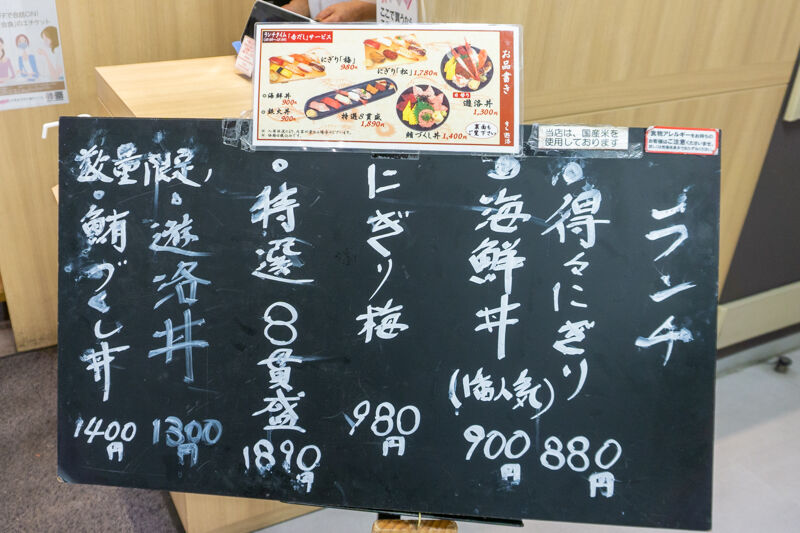 ランチタイム「あらだし」サービス
にぎり「梅」
980円
にぎり「松」1,780円
お品書き
・海鮮丼
900円
・鉄火丼
900円
特選8貫盛
1,890円
遊洛丼
1,300円
鮪づくし丼 1,400円
裏面も
ご覧下さい
当店は、国産米を
使用しております
食物アレルギーをお持ちの
お客様はご注意くださいませ。
ランチ
得々にぎり
880円
海鮮丼
(1番人気)
900円
にぎり梅
980円
特選8貫盛
1890円
数量限定
遊洛丼
1300円
鮪づくし丼
1400円